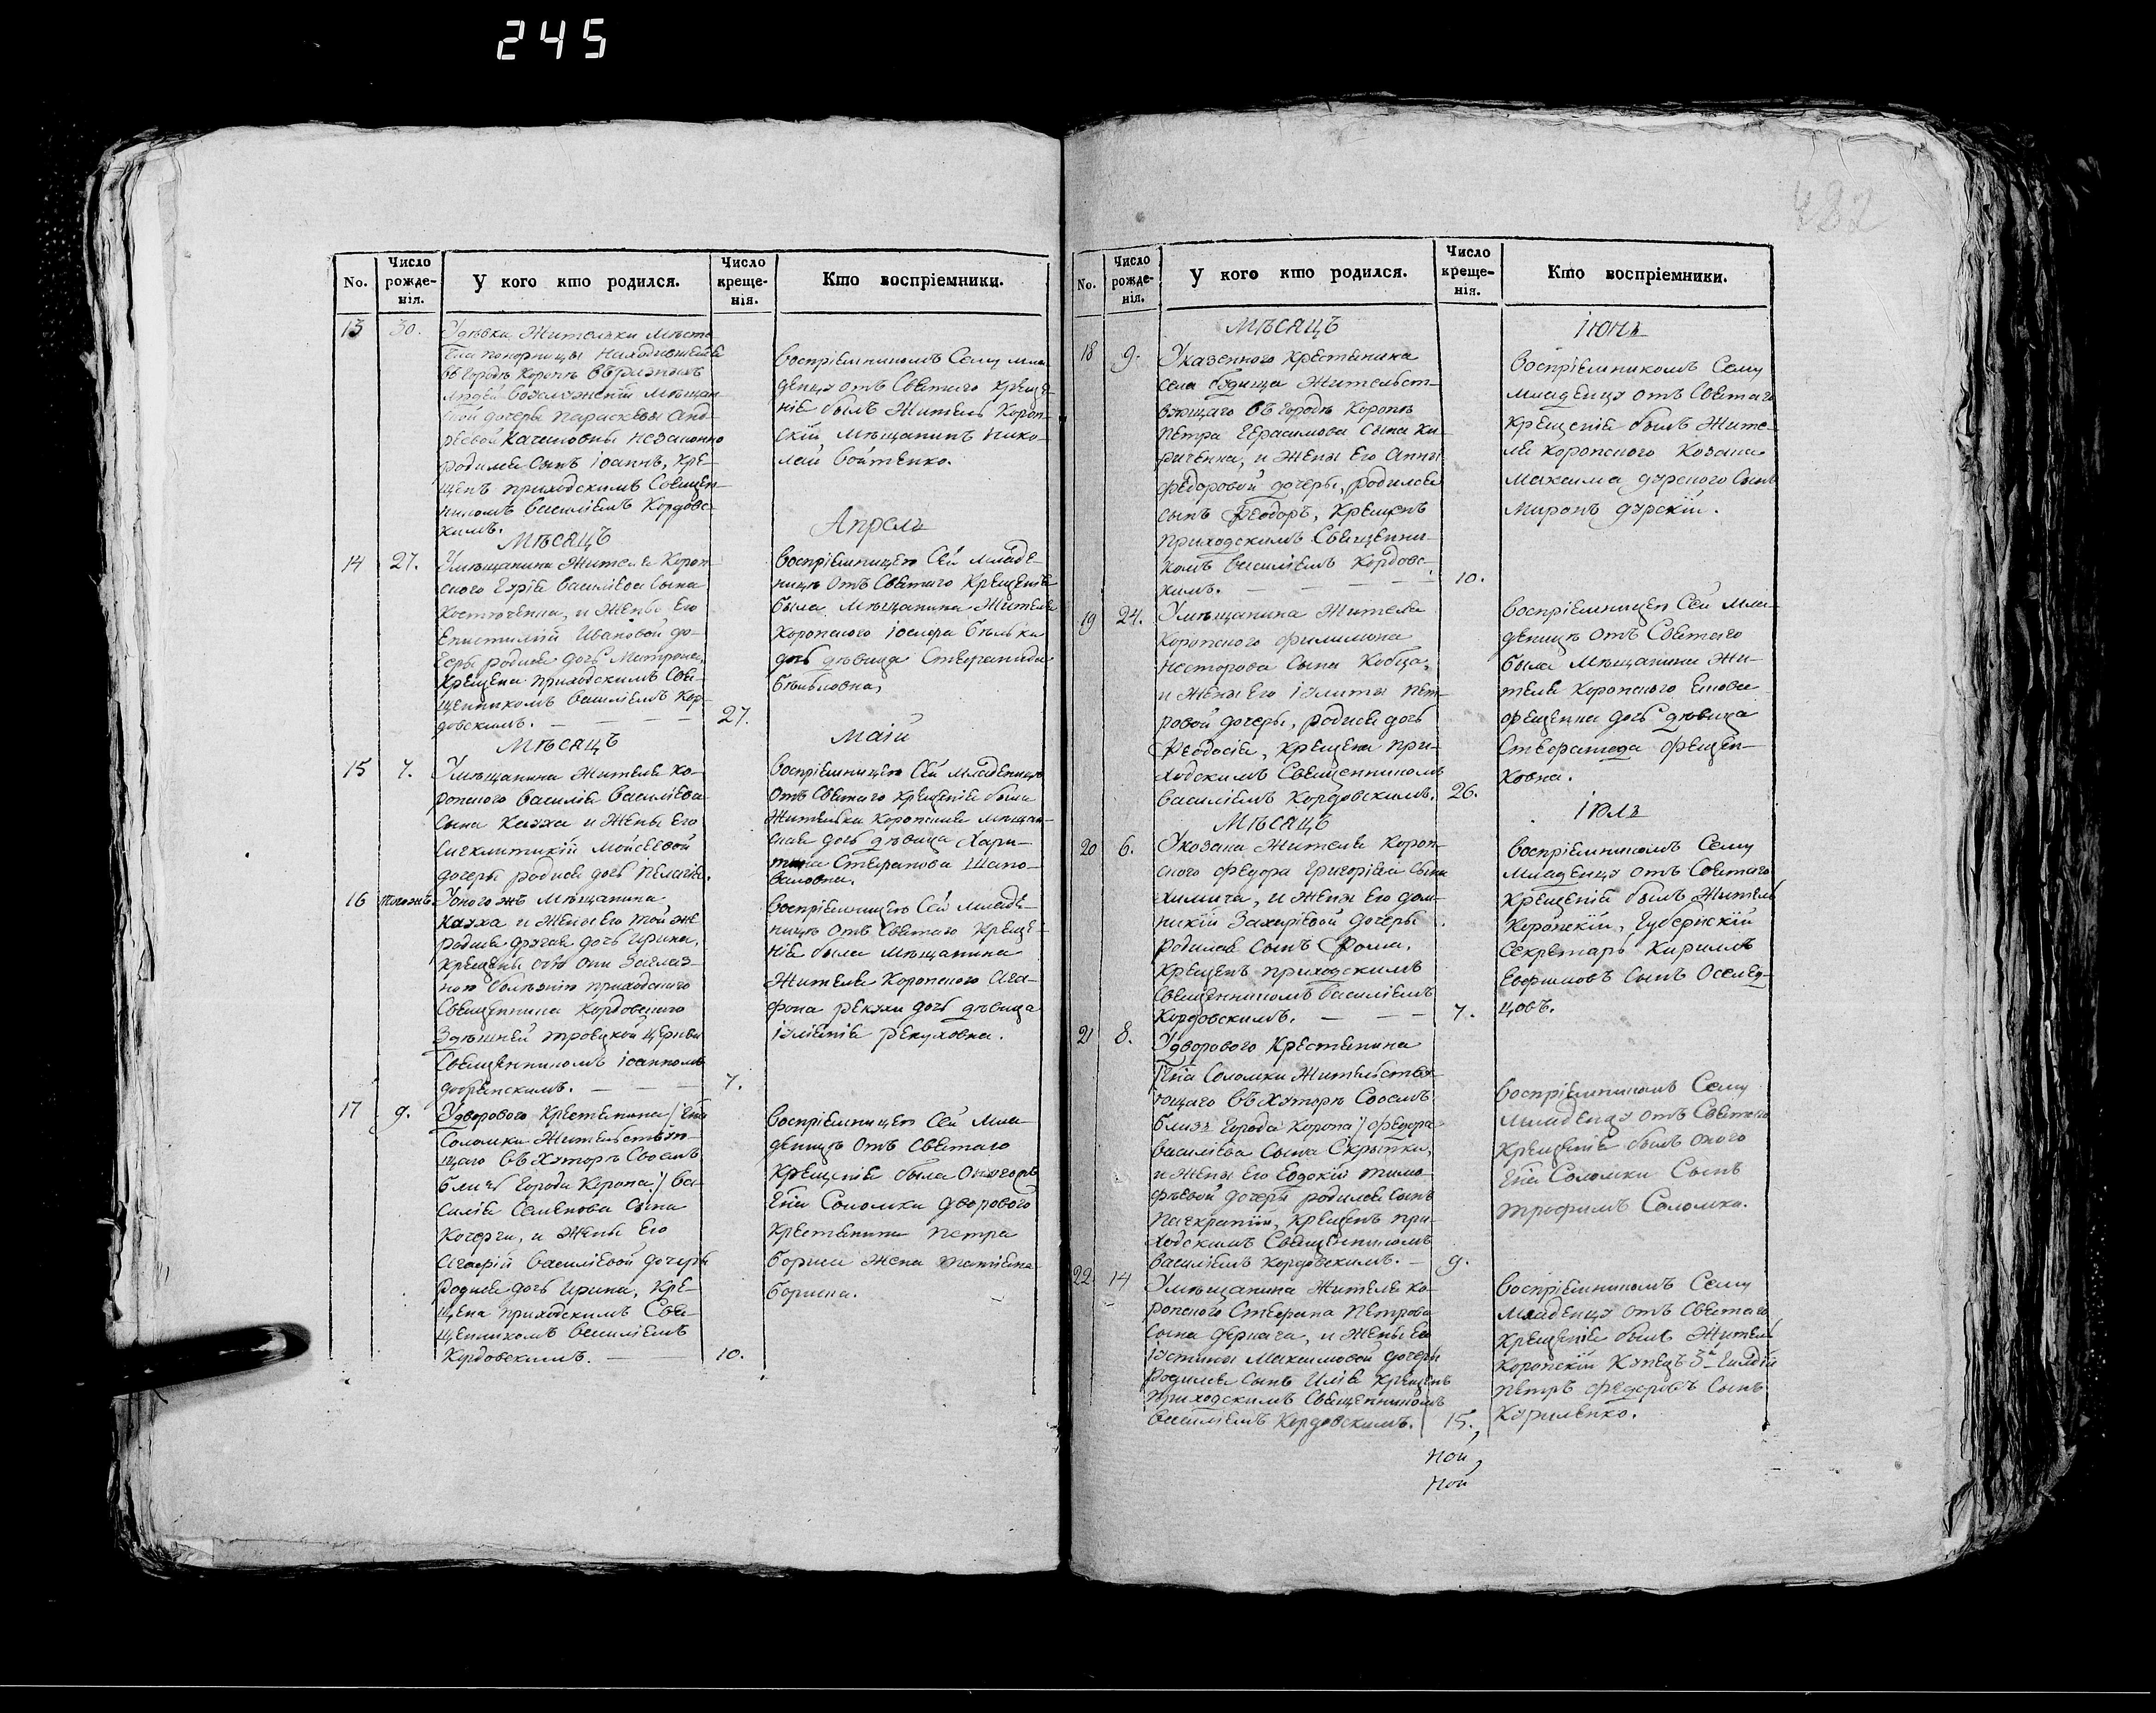 245
482
No.
Число рожде-нія.
У кого кто родился.
Число креще-нія.
Кто воспріемники.
13 30. У девки Жительки месте
чка понорницы находившейся
въ городе Коропе въ разныхъ
людей мещан
ской дочери параскевы Анд-
реевой незаконно
родился сынъ Іоаннъ, кре-
щенъ приходскимъ священ-
никомъ василіемъ Кордовс-
кимъ.
воспріемникомъ сему мла
денцу отъ святаго креще
нія былъ житель Короп-
скій мещанинъ нико-
лай войтенко.
Мѣсяцъ Апрель
14 27. У мѣщанина жителя Короп-
ского Гурія василіева сына
Костюченка, и жены его
Епистиміи Ивановой до-
чери родися дочь Матрона,
крещена приходскимъ свя-
щенникомъ василіемъ Кор-
довскимъ. — — — 27.
воспріемницею сей младе-
ницы отъ святаго крещенія
была мѣщанина жителя
коропского іосифа
дочь дѣвица Стефанида
Мѣсяцъ маій
15 7. У мѣщанина жителя ко-
ропского василія василіева
сына Кауха и жены его
Синклитикіи мойсеевой
дочери родися дочь пелагія.
воспріемницею сей младеницы
отъ святаго крещенія была
жителки коропской мещан-
дочь дѣвица Хари-
тина Стефанова Шапо-
валовна.
16 того жъ. У оного жъ мѣщанина
Кауха и жены его той же
родися другая дочь Ирина,
крещены
болѣзнію приходского
священника Кордовского
здѣшней троецкой церкви
священникомъ іоанномъ
добрянскимъ. — — — 7.
воспріемницею сей младе-
ницы отъ святаго креще-
нія была мѣщанина
жителя коропского Ага-
фона рекухи дочь дѣвица
Іуліанія рекуховна.
17 9. У дворового крестянина /:Гна
Соломки жительствую-
щаго въ хуторѣ своемъ
близъ города Коропа:/ ва-
силія Семенова сына
Кочерги, и жены его
Агафіи василіевой дочери
родися дочь Ирина, кре-
щена приходскимъ свя-
щенникомъ василіемъ
Кордовскимъ. — — 10.
воспріемницею сей мла-
деницы отъ святаго
крещенія была оного же
Гна Соломки дворового
крестянина петра
бориса жена татіяна
No.
Число рожде-нія.
У кого кто родился.
Число креще-нія.
Кто воспріемники.
Мѣсяцъ Іюнь
18 9. У казенного крестянина
села будища жительст-
вующаго въ городѣ Коропѣ
петра Герасимова сына Ки-
риченка, и жены его Анны
федоровой дочери, родился
сынъ Феодоръ, крещенъ
приходскимъ священни-
комъ василіемъ Кордовс-
кимъ. — — — 10.
воспріемникомъ сему
младенцу отъ святаго
крещенія былъ жите-
ля коропского козака
максима дурского сынъ
миронъ дурскій.
19 24. У мѣщанина жителя
Коропского филимона
несторова сына Кобца,
и жены его Іулиты пет-
ровой дочери, родися дочь
Феодосія, крещена при-
ходскимъ священникомъ
василіемъ Кордовскимъ. 26.
воспріемницею сей мла-
деницы отъ святаго
была мѣщанина жи-
теля коропского
фещенка дочь дѣвица
Стефанида фещен-
ковна.
Мѣсяцъ Іюль
20 6. У козака жителя Короп-
ского федора григоріева сына
химича, и жены его дом-
никіи Захаріевой дочери
родился сынъ Фома,
крещенъ приходскимъ
священникомъ василіемъ
Кордовскимъ. — — — 7.
воспріемникомъ сему
младенцу отъ святаго
крещенія былъ житель
Коропскій, губернскій
секретаръ Кириллъ
Евфимовъ сынъ Оселед-
цовъ.
21 8. У дворового крестянина
/:Гна Соломки жительству-
ющаго въ хуторѣ своемъ
близъ города Коропа:/ федора
василіева сына Скрыпки,
и жены его Евдокіи тимо-
фѣевой дочери родился сынъ
панкратій, крещенъ при-
ходскимъ священникомъ
василіемъ Кордовскимъ. — 9.
воспріемникомъ сему
младенцу отъ святаго
крещенія былъ оного
Гна Соломки сынъ
трофимъ Соломка.
22 14 У мѣщанина жителя ко-
ропского Стефана петрова
сына дернача, и жены его
Іустины максимовой дочери
родился сынъ Илія крещенъ
приходскимъ священникомъ
василіемъ Кордовскимъ. 15.
воспріемникомъ сему
младенцу отъ святаго
крещенія былъ житель
коропскій купецъ 3й гилдіи
петръ федоровъ сынъ
Куриленко.
ной
ной